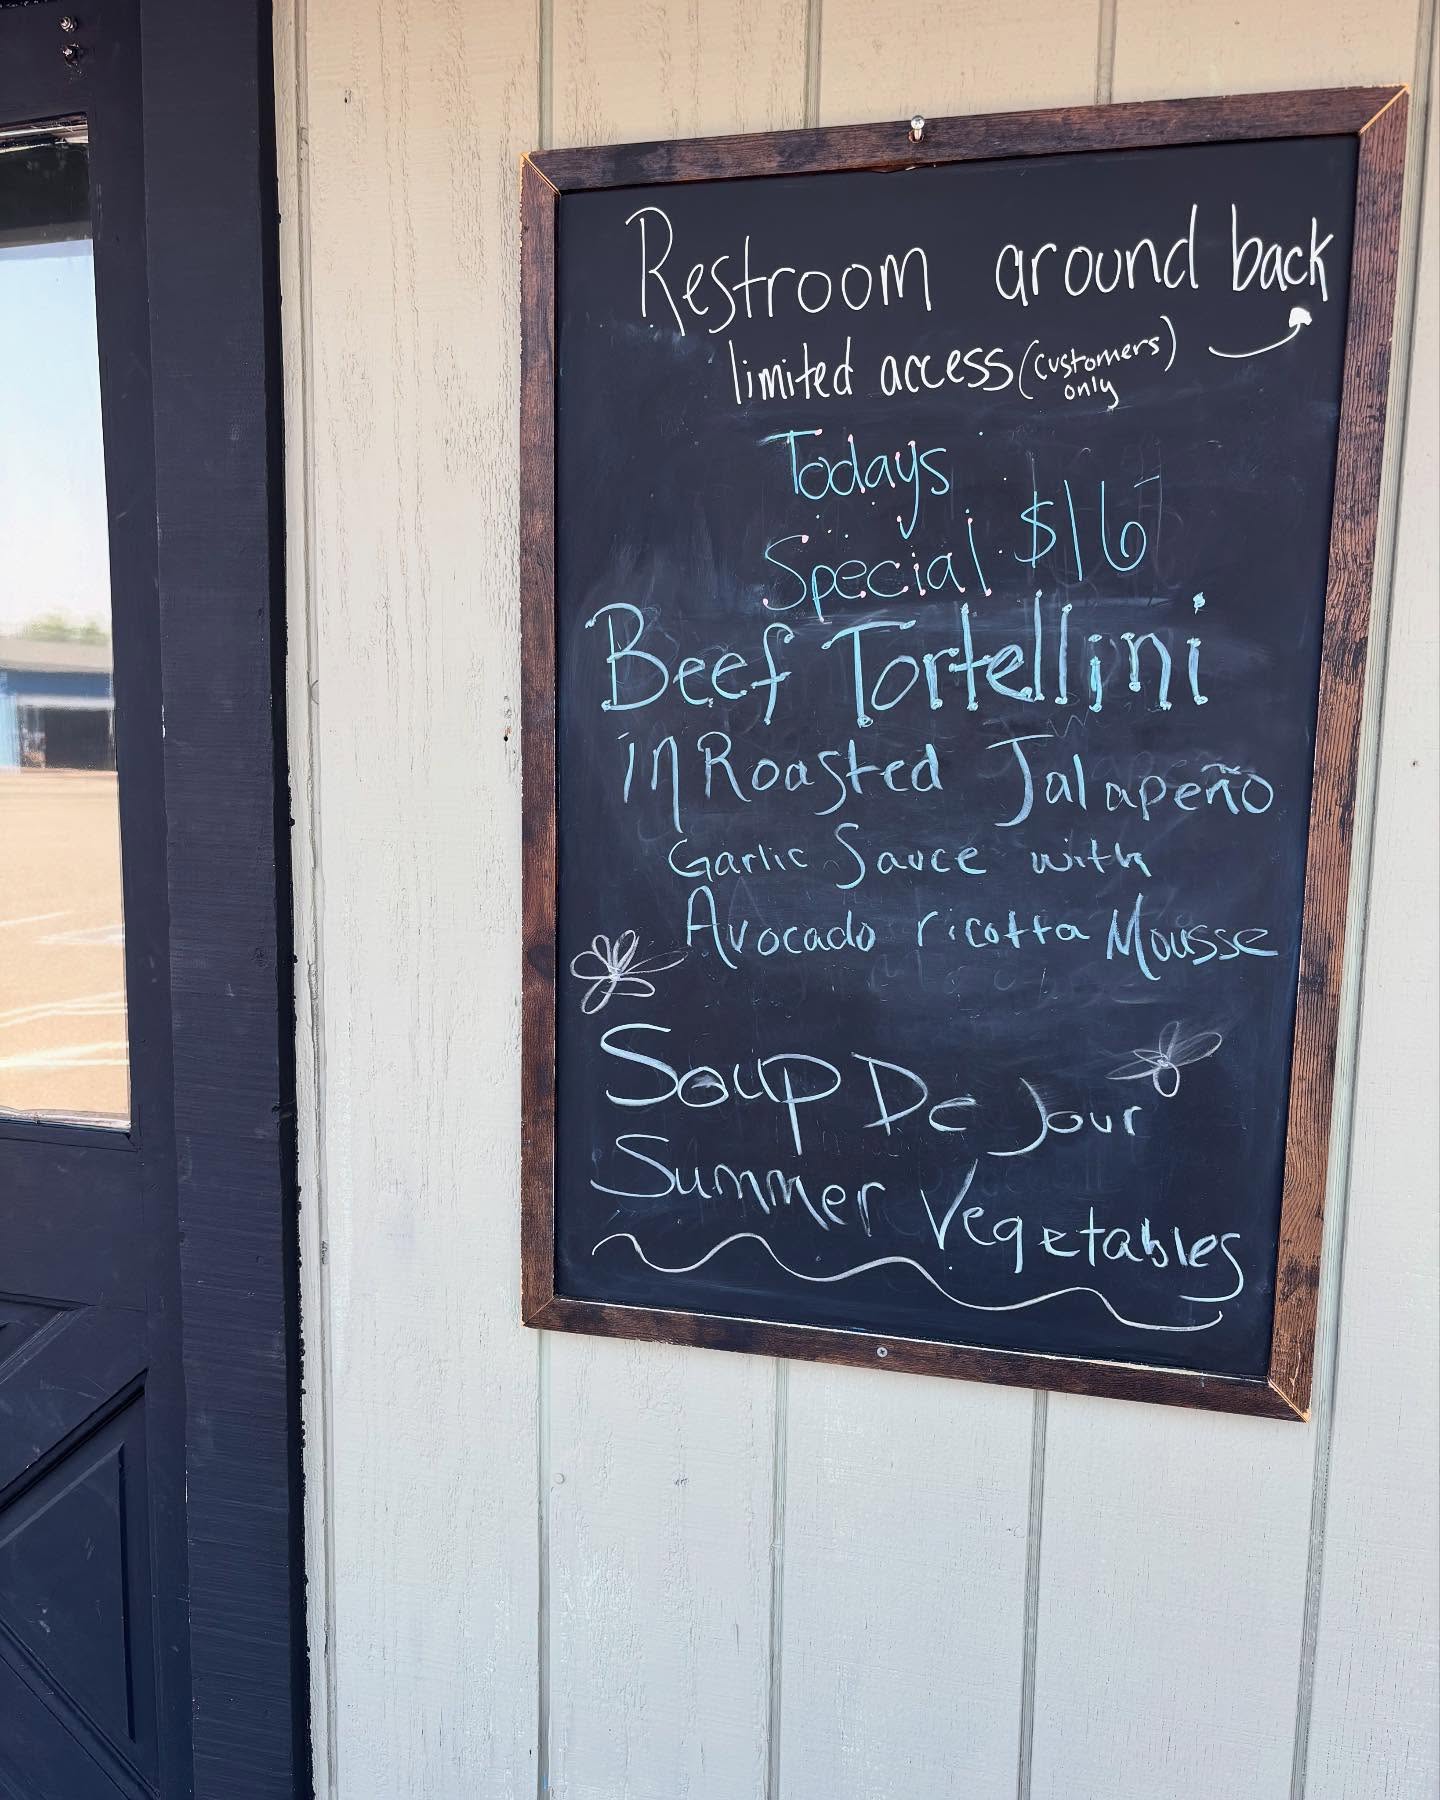 Restroom around back
limited access (customers only)
Todays
Special $16
Beef Tortellini
in Roasted Jalapeño
Garlic Sauce with
Avocado ricotta Mousse
Soup De Jour
Summer Vegetables